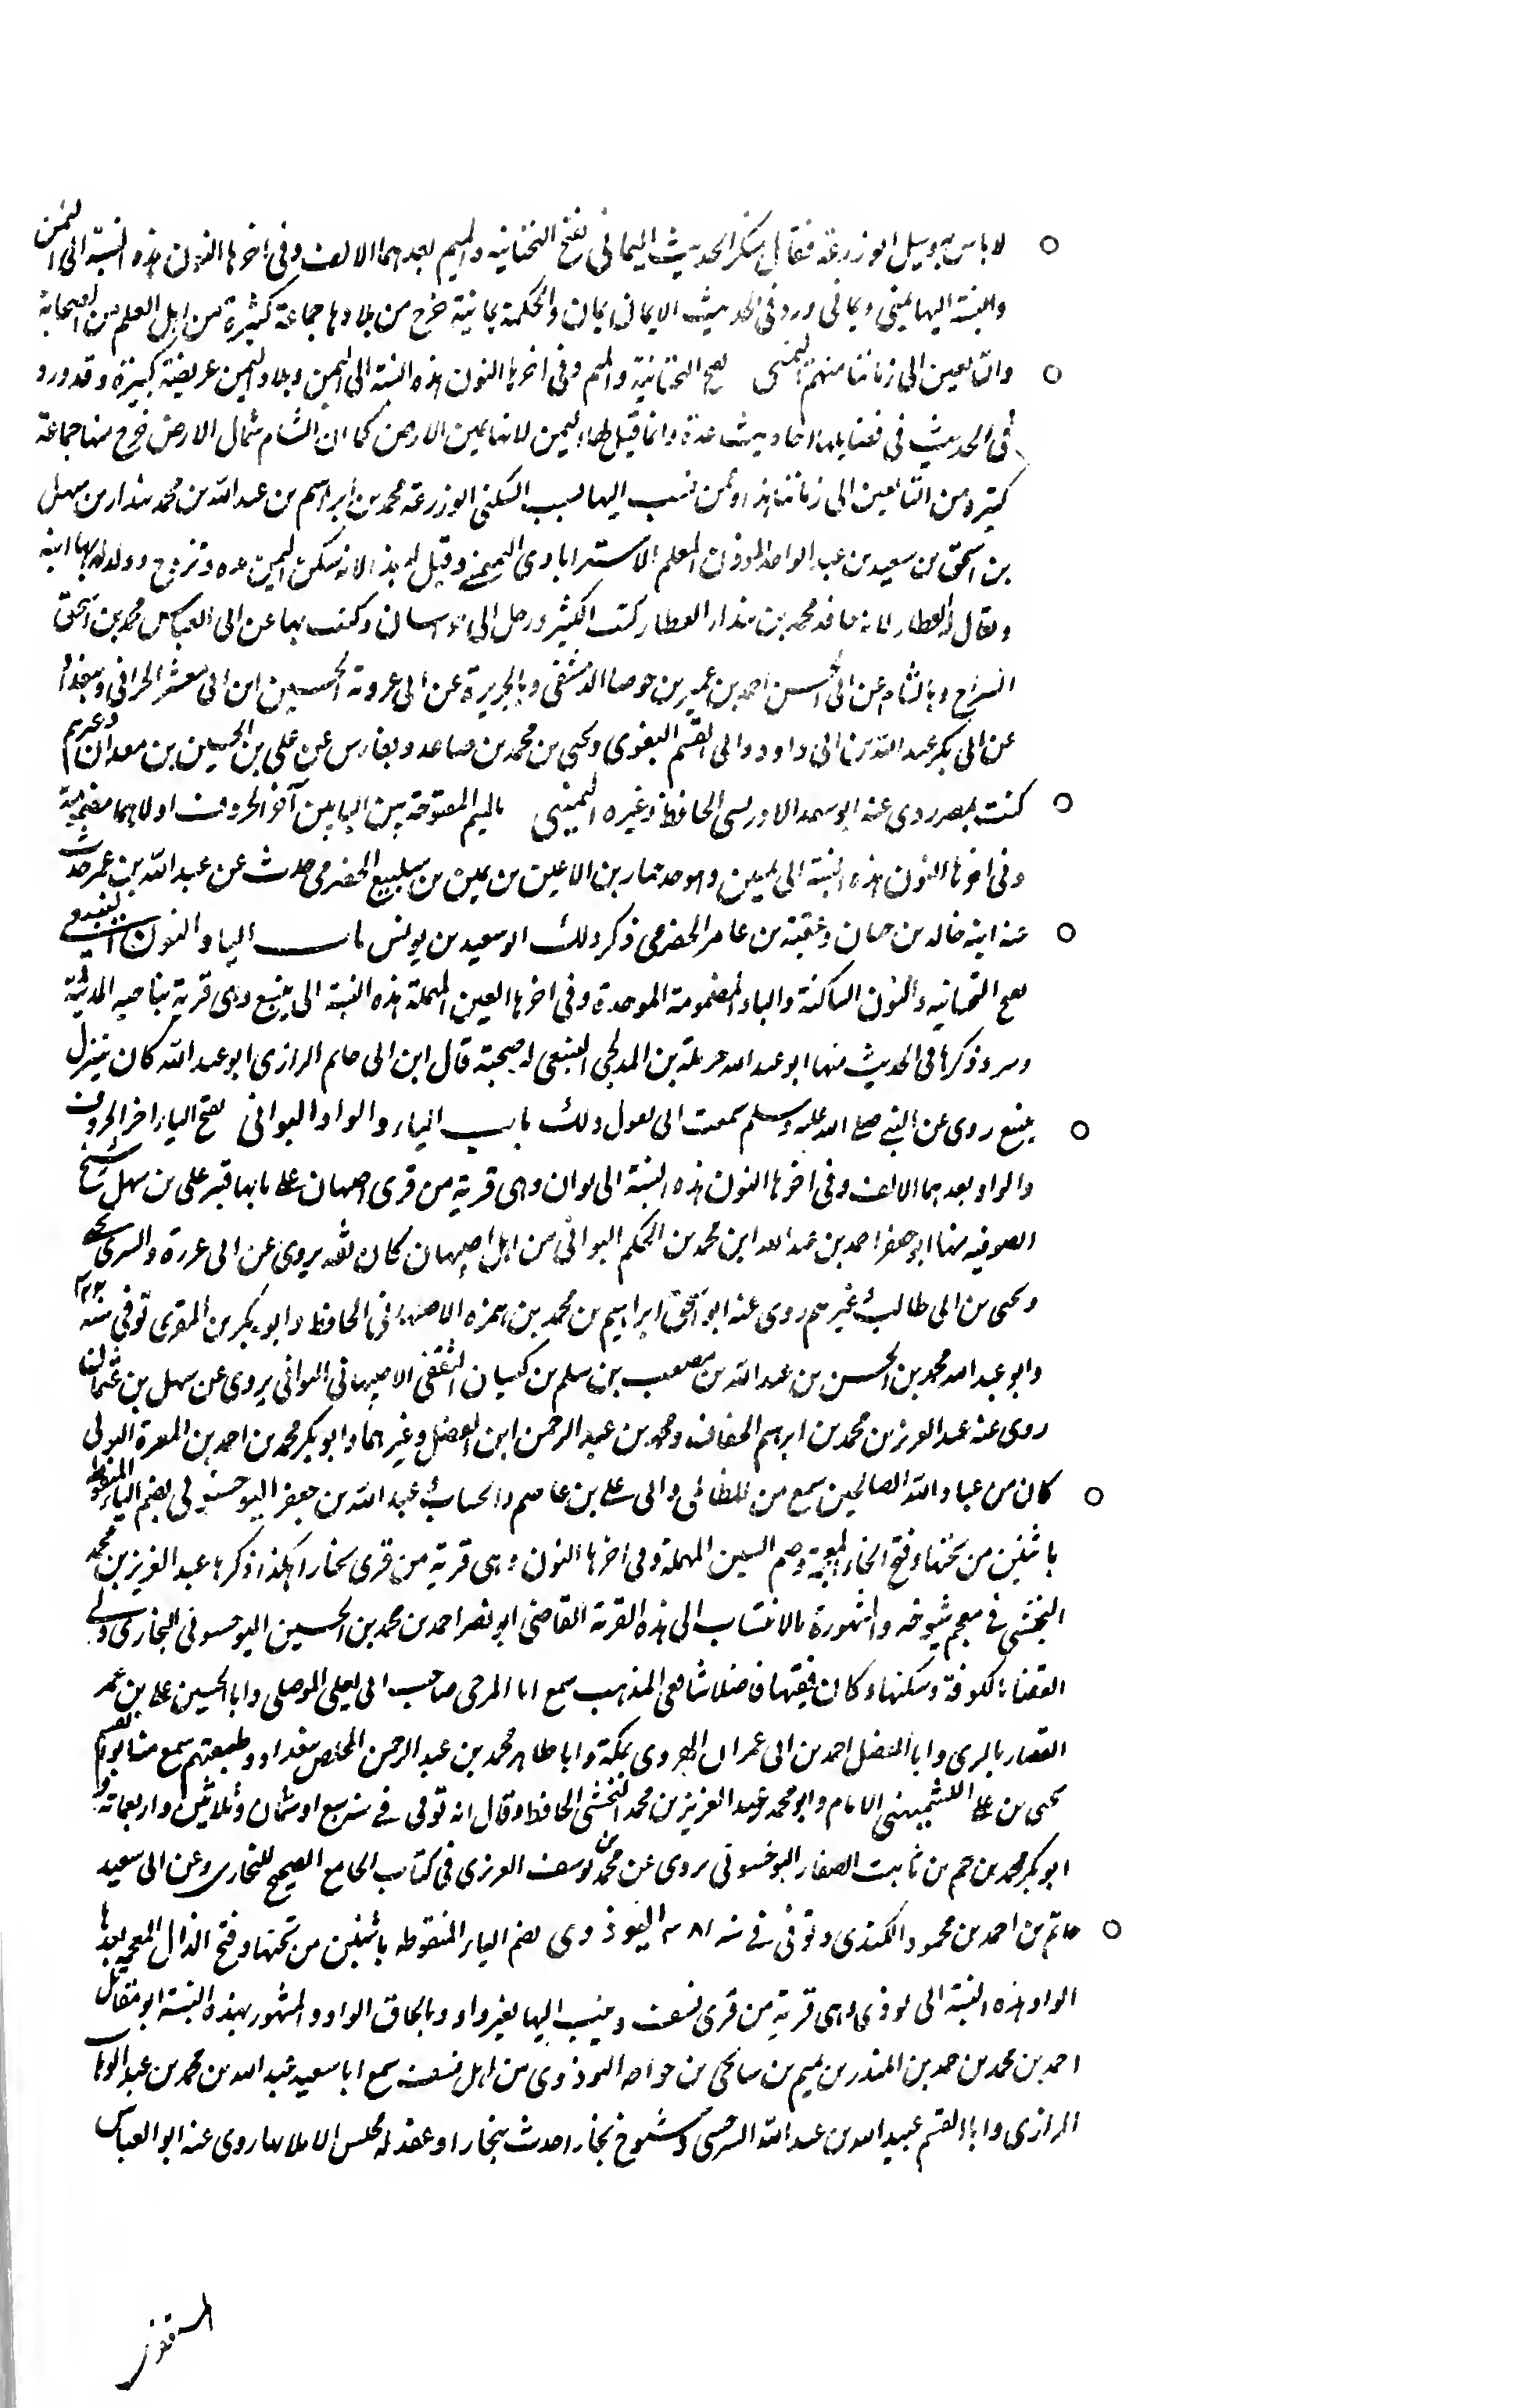 لا باس به وسيل ابو زرعة فقال منكر الحديث اليماني بفتح التحتانيه والميم بعدهما الالف وفي اخرها النون هذه النسبة الى اليمن
والنسبة اليها يمني ويماني ورد في الحديث الايمان يمان والحكمة يمانية خرج من بلادها جماعة كثيرة من اهل العلم من الصحابة
والتابعين الى زماننا منهم اليمني بفتح التحتانية والميم وفي اخرها النون هذه النسبة الى اليمن وبلاد اليمن عريضة كبيرة وقد ورد
في الحديث في فضايلها احاديث عدة وانما قيل لها اليمن لانها يمين الارض كما ان الشام شمال الارض خرج منها جماعة
كثيره من التابعين الى زماننا هذا وممن نسب اليها بسبب السكنى ابو زرعة محمد بن ابراهيم بن عبد الله بن محمد بندار بن سهل
بن اسحق بن سعيد بن عبد الواحد المؤذن المعلم الاستراباذي اليمني وقيل له هذا لانه سكن اليمن مدة وتزوج وولد له بها ابنه
ويقال العطار لانه حافد محمد بن بندار العطار كتب الكثير ورحل الى خراسان وكتب بها عن ابي العباس محمد بن اسحق
السراج وبالشام عن ابي الحسن احمد بن عمير بن جوصا الدمشقي وبالجزيرة عن ابي عروبة الحسين ابن ابي معشر الحراني وببغداد
عن ابي بكر عبد الله بن ابي داود وابي القسم البغوي ويحيى بن محمد بن صاعد وبفارس عن علي بن الحسين بن معدان وغيرهم
كتب بمصر روى عنه ابو سعد الادريسي الحافظ وغيره اليميني بالميم المفتوحة بين اليايين آخر الحروف اولاهما مضمومة
وفي اخرها النون هذه النسبة الى يمين وهو جد حمار بن الاعين بن يمين بن سلبيع الحضرمي حدث عن عبد الله بن عمر حدث
عنه ابنه خالد بن حمان وعقبة بن عامر الحضرمي ذكر ذلك ابو سعيد بن يونس باب اليا والنون الينبعي
بفتح التحتانيه والنون الساكنة والباء المضمومة الموحدة وفي اخرها العين المهملة هذه النسبة الى ينبع وهي قرية بناحيه المدينة
ويرد ذكرها في الحديث منها ابو عبد الله حرملة بن المدلجي الينبعي له صحبة قال ابن ابي حاتم الرازي ابو عبد الله كان ينزل
ينبع روى عن النبي صلى الله عليه وسلم سمعت ابي يقول ذلك باب الياء والواو اليواني بفتح الياء اخر الحروف
والواو بعدهما الالف وفي اخرها النون هذه النسبة الى يوان وهي قرية من قرى اصبهان على بابها قبر علي بن سهل شيخ
الصوفيه منها ابو جعفر احمد بن عبد الله ابن محمد بن الحكم اليواني من اهل اصبهان كان ثقه يروي عن ابي عزرة والسري بن يحيى
ويحيى بن ابي طالب وغيرهم روى عنه ابو اسحق ابراهيم بن محمد بن حمزه الاصبهاني الحافظ وابو بكر بن المقري توفي سنة ٣٢٢
وابو عبد الله محمد بن الحسن بن عبد الله بن مصعب بن سلم بن كيسان الثقفي الاصبهاني اليواني يروي عن سهل بن عثمان
روى عنه عبد العزيز بن محمد بن ابرهيم الخفاف ومحمد بن عبد الرحمن ابن الفضل وغيرهما وابو بكر محمد بن احمد بن المعرة اليواني
كان من عباد الله الصالحين سمع من الطائي وابي علي بن عاصم والحساب عبد الله بن جعفر اليوخسوني بضم الياء المنقوطة
باثنتين من تحتها وفتح الخاء المعجمة وضم السين المهملة وفي اخرها النون وهي قرية من قرى بخارا هكذا ذكرها عبد العزيز بن محمد
النخشبي في معجم شيوخه والمشهورة بالانتساب الى هذه القرية القاضي ابو نصر احمد بن محمد بن الحسين اليوخسوني البخاري ولي
القضا بالكوفة وسكنها وكان فقيها فاضلا شافعي المذهب سمع ابا المرجى صاحب ابي يعلى الموصلي وابا الحسين علي بن عمر
القصار بالري وابا الفضل احمد بن ابي عمران الهروي بمكة وابا طاهر محمد بن عبد الرحمن المخلص ببغداد وطبقتهم سمع منه ابو القسم
يحيى بن علي الكشميهني الامام وابو محمد عبد العزيز بن محمد النخشبي الحافظ وقال انه توفي في سنة سبع او ثمان وثلاثين واربعماته و
ابو بكر محمد بن حم بن ثابت الصفار اليوخسوني يروي عن محمد بن يوسف الفربري في كتاب الجامع الصحيح للبخاري وعن ابي سعيد
حاتم بن احمد بن محمود الكندي وتوفي في سنه ٣٨١ اليوذوي بضم الياء المنقوطه باثنتين من تحتها وفتح الذال المعجمة بعدها
الواو هذه النسبة الى يوذى وهي قرية من قرى نسف وينسب اليها بغير واو وبالحاق الواو والمشهور بهذه النسبة ابو مقاتل
احمد بن محمد بن حمد بن المنذر بن تميم بن سانحي بن خواجه اليوذوي من اهل نسف سمع ابا سعيد عبد الله بن محمد بن عبد الوهاب
الرازي وابا القسم عبيد الله بن عبد الله السرخسي وشيوخ بخارا حدث ببخارا وعقد له مجلس الاملا بها روى عنه ابو العباس
المستغفري